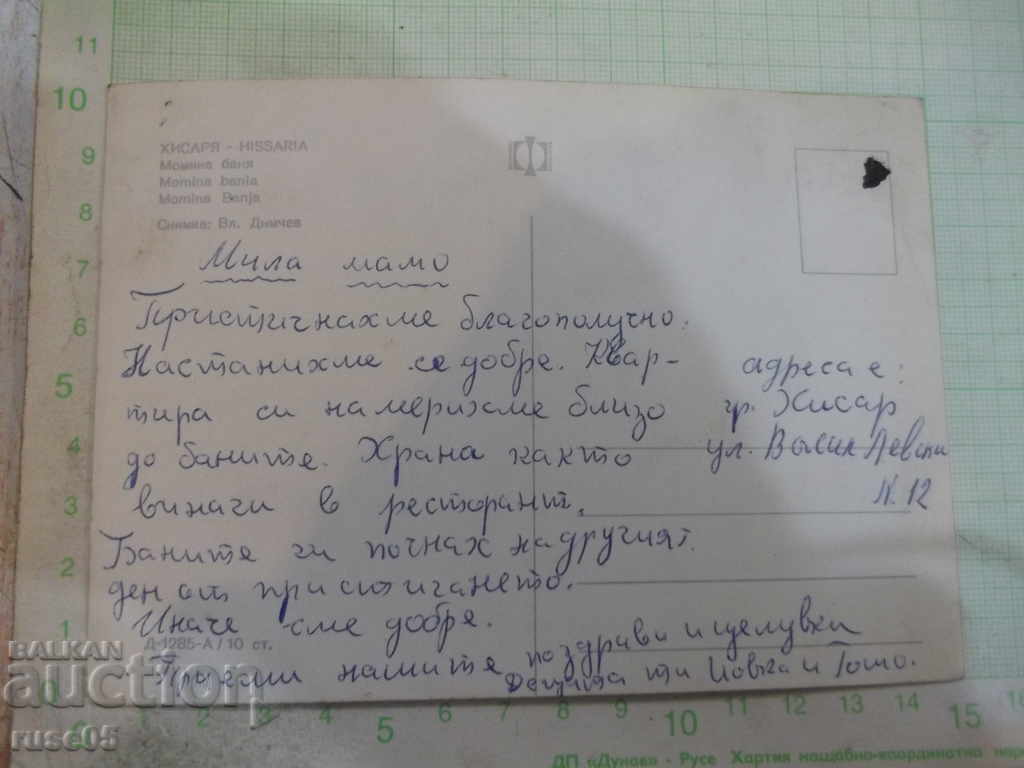 ХИСАРЯ - HISSARIA
Момина баня
Momina bania
Momina Banja
Снимка: Вл. Димчев
Мила мамо
Пристигнахме благополучно.
Настанихме се добре. Квар-
тира си намерихме близо
до баните. Храна както
винаги в ресторант.
Баните ги почнах на другият
ден от пристигането.
Иначе сме добре.
Д-1285-А/10 ст.
Приеми нашите поздрави и целувки
Децата ти и Тошо.
адреса е:
гр. Хисар
ул. Васил Левски
N. 12
BALKAN
auction
ruse05
11
10
9
8
7
6
5
4
3
2
1
0
1
2
3
4
5
6
7
8
9
10
11
12
13
14
15
16
ДП «Дунав» - Русе Хартия нощабно-координатна